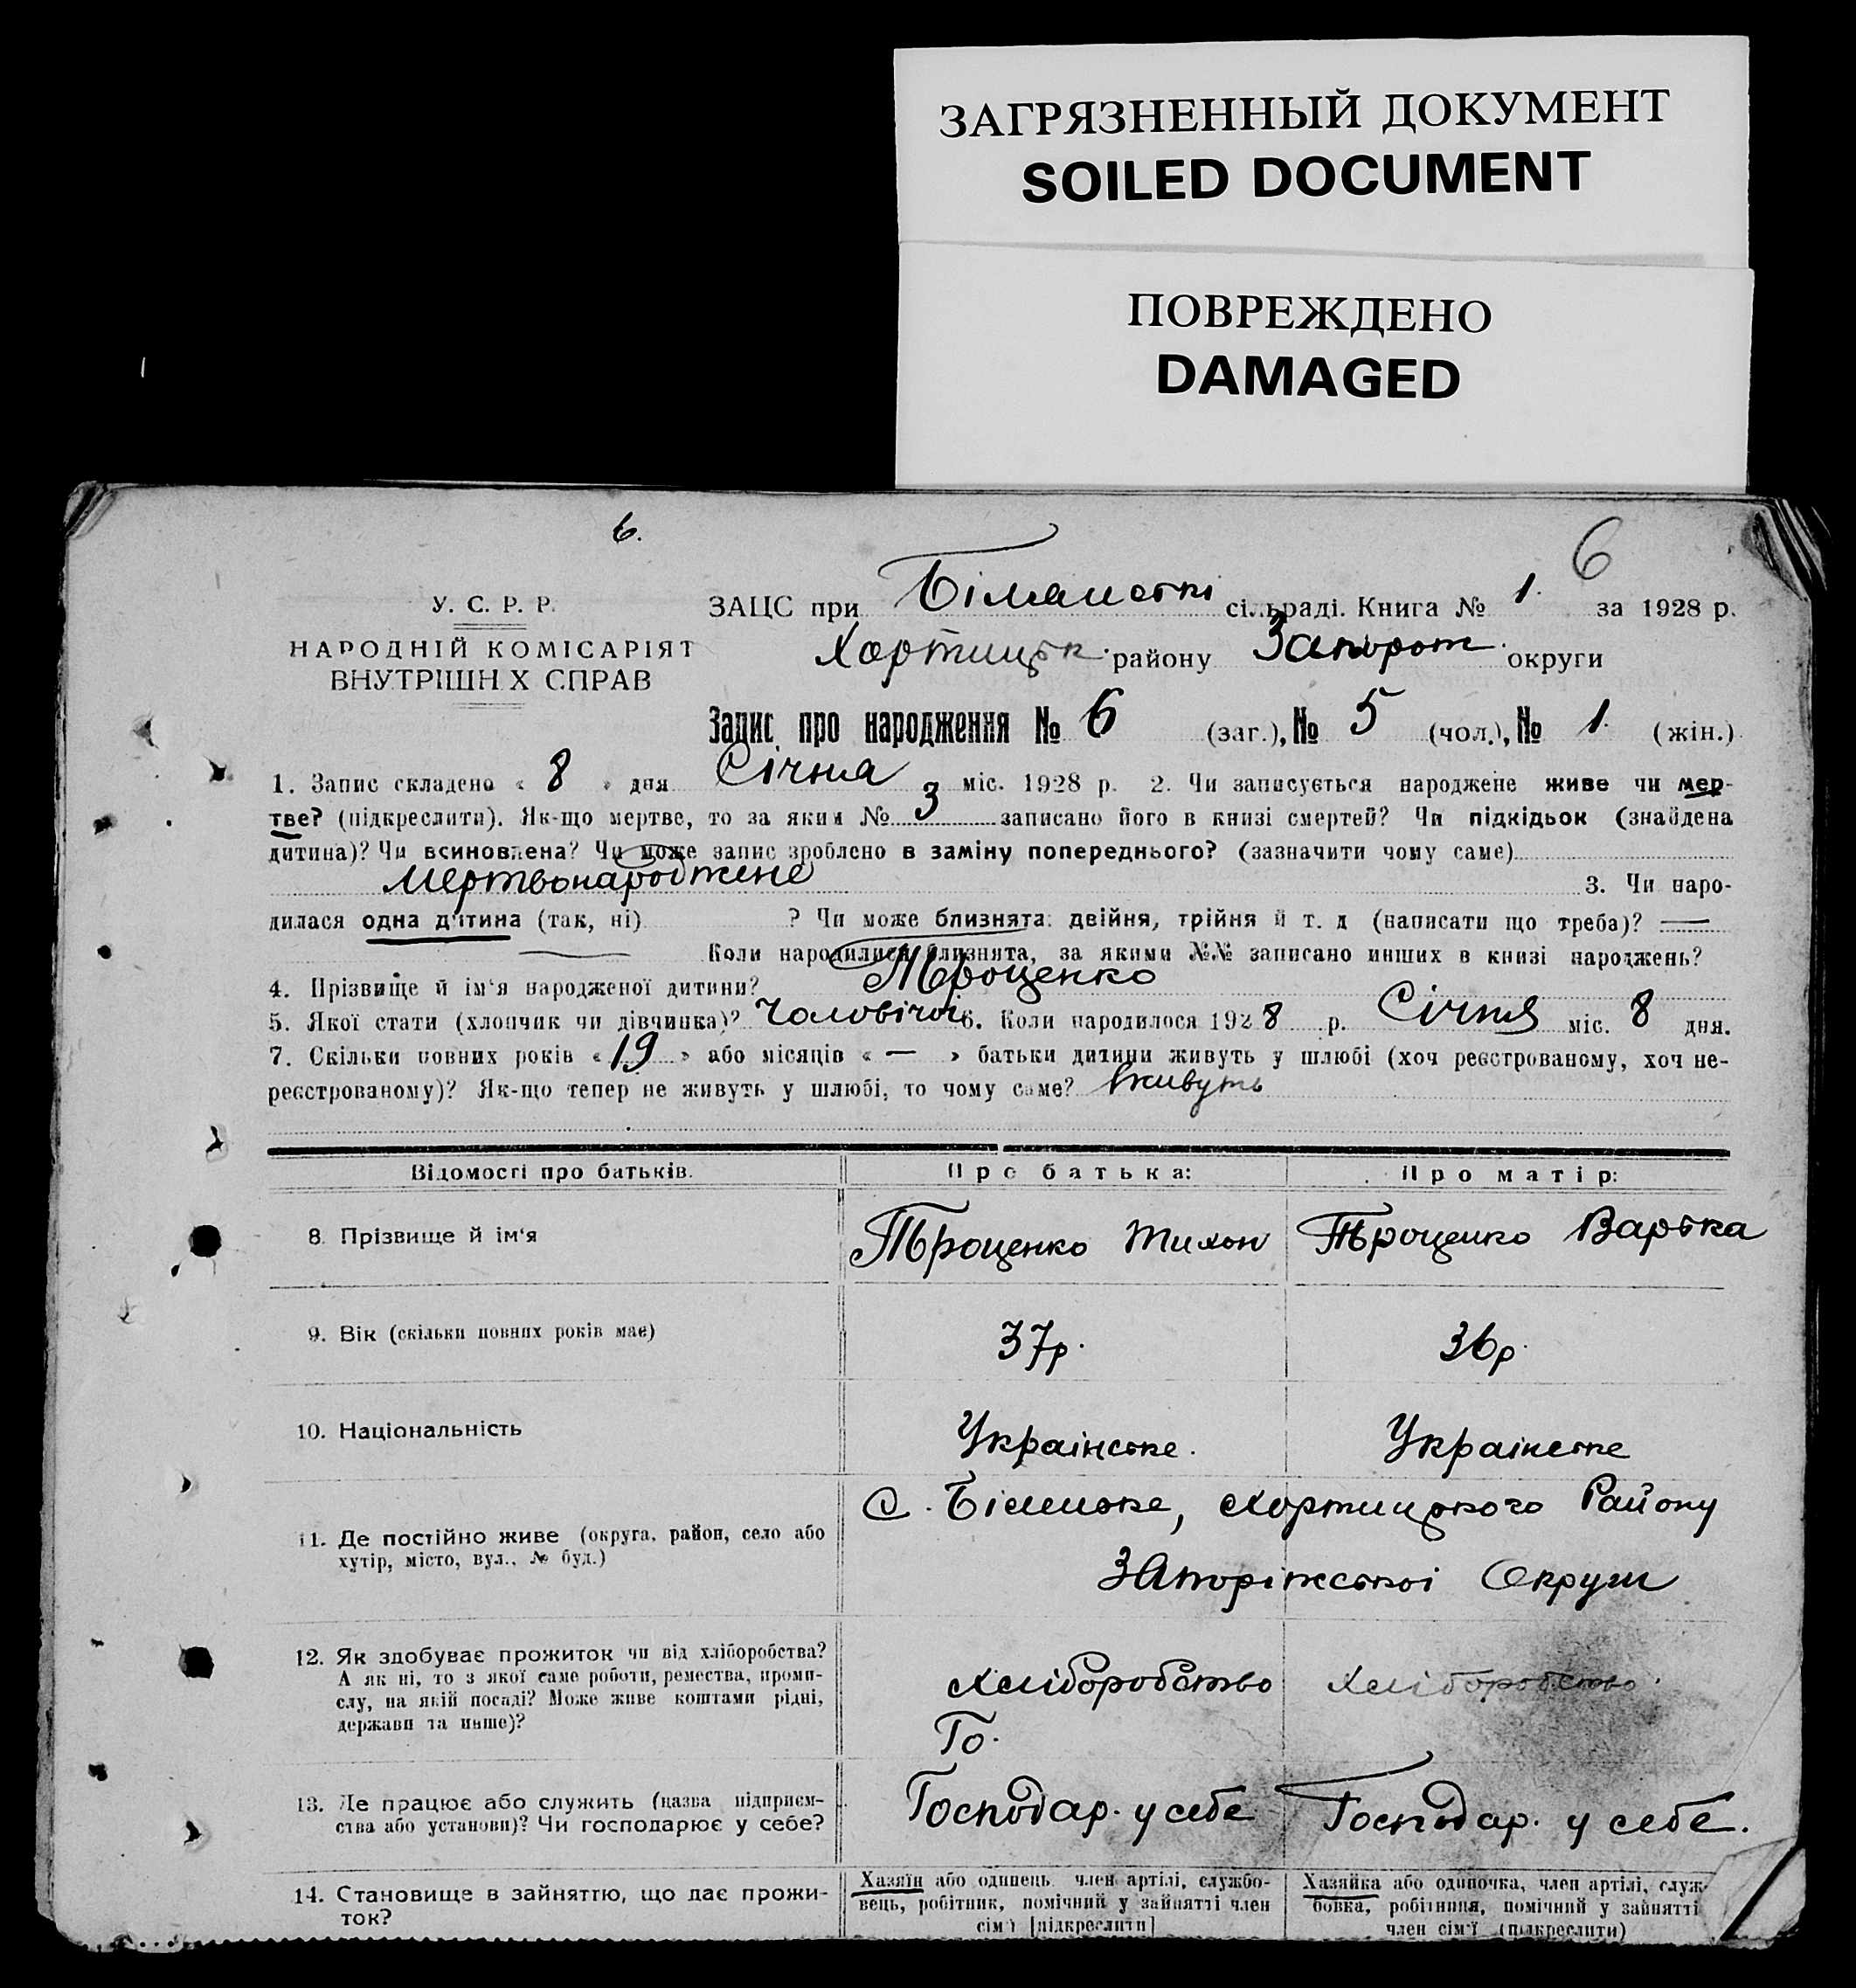 ЗАГРЯЗНЕННЫЙ ДОКУМЕНТ
SOILED DOCUMENT
ПОВРЕЖДЕНО
DAMAGED
6.
6
У. С. Р. Р.
НАРОДНІЙ КОМІСАРІЯТ
ВНУТРІШН Х СПРАВ
ЗАЦС при сільраді. Книга № 1. за 1928 р.
Хортицьк. району Запорож. округи
Запис про народження № 6 (заг.), № 5 (чол.), № 1. (жін.)
1. Запис складено « 8 » дня Січня міс. 1928 р. 2. Чи записується народжене живе чи мер-
тве? (підкреслити). Як-що мертве, то за яким № 3 записано його в книзі смертей? Чи підкідьок (знайдена
дитина)? Чи всиновлена? Чи може запис зроблено в заміну попереднього? (зазначити чому саме)
мертвонароджене 3. Чи наро-
дилася одна дитина (так, ні) ? Чи може близнята: двійня, трійня й т. д (написати що треба)? —
— Коли народилися близнята, за якими №№ записано инших в книзі народжень?
4. Прізвище й ім‘я народженої дитини? Троценко
5. Якої стати (хлопчик чи дівчинка)? Чоловічої 6. Коли народилося 1928 р. Січня міс. 8 дня.
7. Скільки повних років « 19 » або місяців « — » батьки дитини живуть у шлюбі (хоч реєстрованому, хоч не-
реєстрованому)? Як-що тепер не живуть у шлюбі, то чому саме? живуть
Відомості про батьків. Про батька: Про матір:
8. Прізвище й ім‘я Троценко Тихон Троценко Варька
9. Вік (скільки повних років має) 37р. 36р.
10. Національність Українське. Українське
11. Де постійно живе (округа, район, село або
хутір, місто, вул., № буд.)
С. Хортицького Району
Запоріжської Округи
12. Як здобуває прожиток чи від хліборобства?
А як ні, то з якої саме роботи, ремества, проми-
слу, на якій посаді? Може живе коштами рідні,
держави та инше)?
хліборобство хліборобство.
То.
13. Де працює або служить (назва підприєм-
ства або установи)? Чи господарює у себе?
Господар. у себе Господар. у себе.
14. Становище в зайняттю, що дає прожи-
ток?
Хазяїн або одинець член артілі, службо-
вець, робітник, помічний у зайнятті член
сім‘ї [підкреслити]
Хазяйка або одиночка, член артілі, служ-
бовка, робітниця, помічний у зайнятті
член сім‘ї (підкреслити)